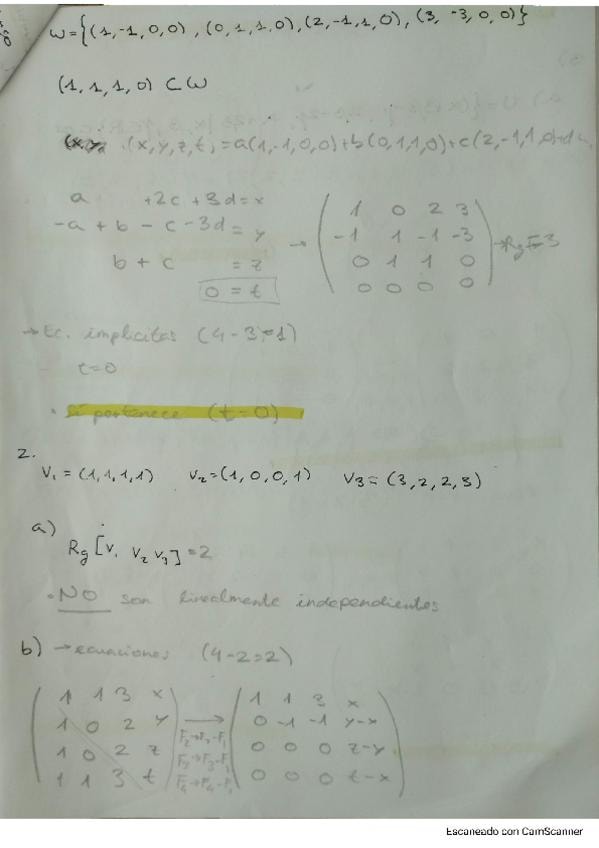 W={(1,-1,0,0), (0,1,1,0),(2,-1,1,0), (3,-3,0,0)}
(1,1,1,0) ⊂ W
(x,y,z,t)=a(1,-1,0,0)+b(0,1,1,0)+c(2,-1,1,0)+d
a +2c +3d = x
-a + b - c -3d = y
b + c = z
0 = t
→ ( 1 0 2 3
-1 1 -1 -3
0 1 1 0
0 0 0 0 ) → Rg = 3
→ Ec. implícitas (4-3=1)
t=0
· Sí pertenece (t=0)
2.
V₁ = (1,1,1,1) V₂=(1,0,0,1) V₃= (3,2,2,3)
a)
Rg [V₁ V₂ V₃] = 2
· NO son linealmente independientes
b) → ecuaciones (4-2=2)
( 1 1 3 x
1 0 2 y
1 0 2 z
1 1 3 t )
→
F₂→F₂-F₁
F₄→F₄-F₁
( 1 1 3 x
0 -1 -1 y-x
0 0 0 z-y
0 0 0 t-x )
Escaneado con CamScanner